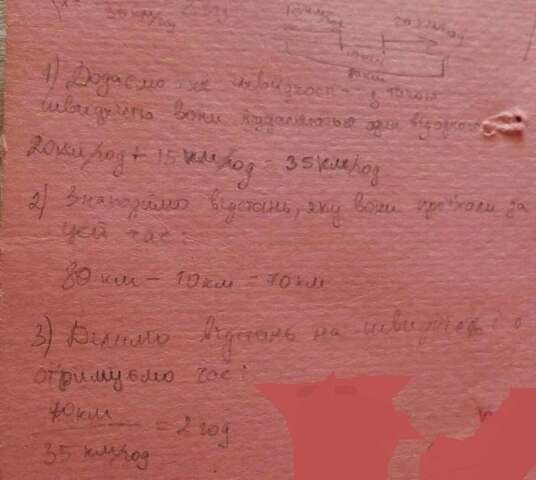 35 км/год
20 км/год
10км
80км
1) Додаємо їх швидкості - з такою
швидкістю вони віддаляються один від одного
20км/год + 15 км/год = 35 км/год
2) Знаходимо відстань, яку вони проїхали за
цей час:
80 км - 10 км = 70 км
3) Ділимо відстань на швидкість і
отримуємо час:
70км
= 2 год
35 км/год